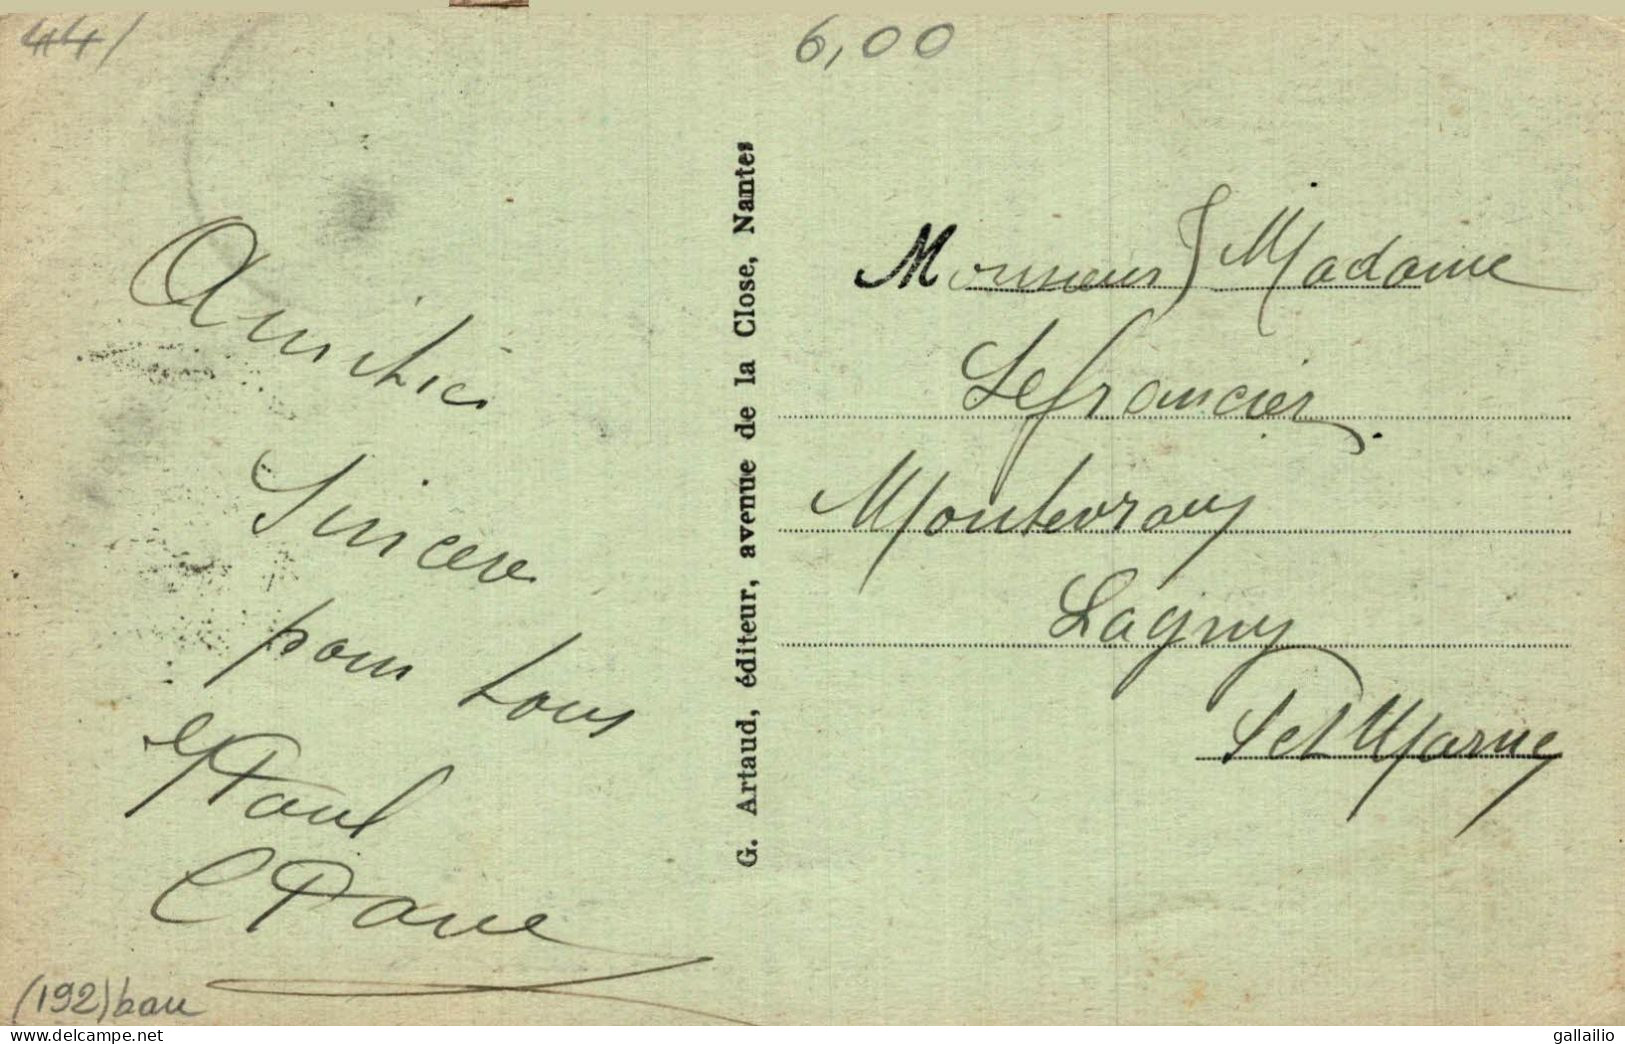 44/
6,00
Amitiés
Sincère
pour tous
Paul
G. Artaud, éditeur, avenue de la Close, Nantes
Monsieur & Madame
Lefrancier
Montevray
Lagny
S et Marne
(192) bau
www.delcampe.net
gallailio